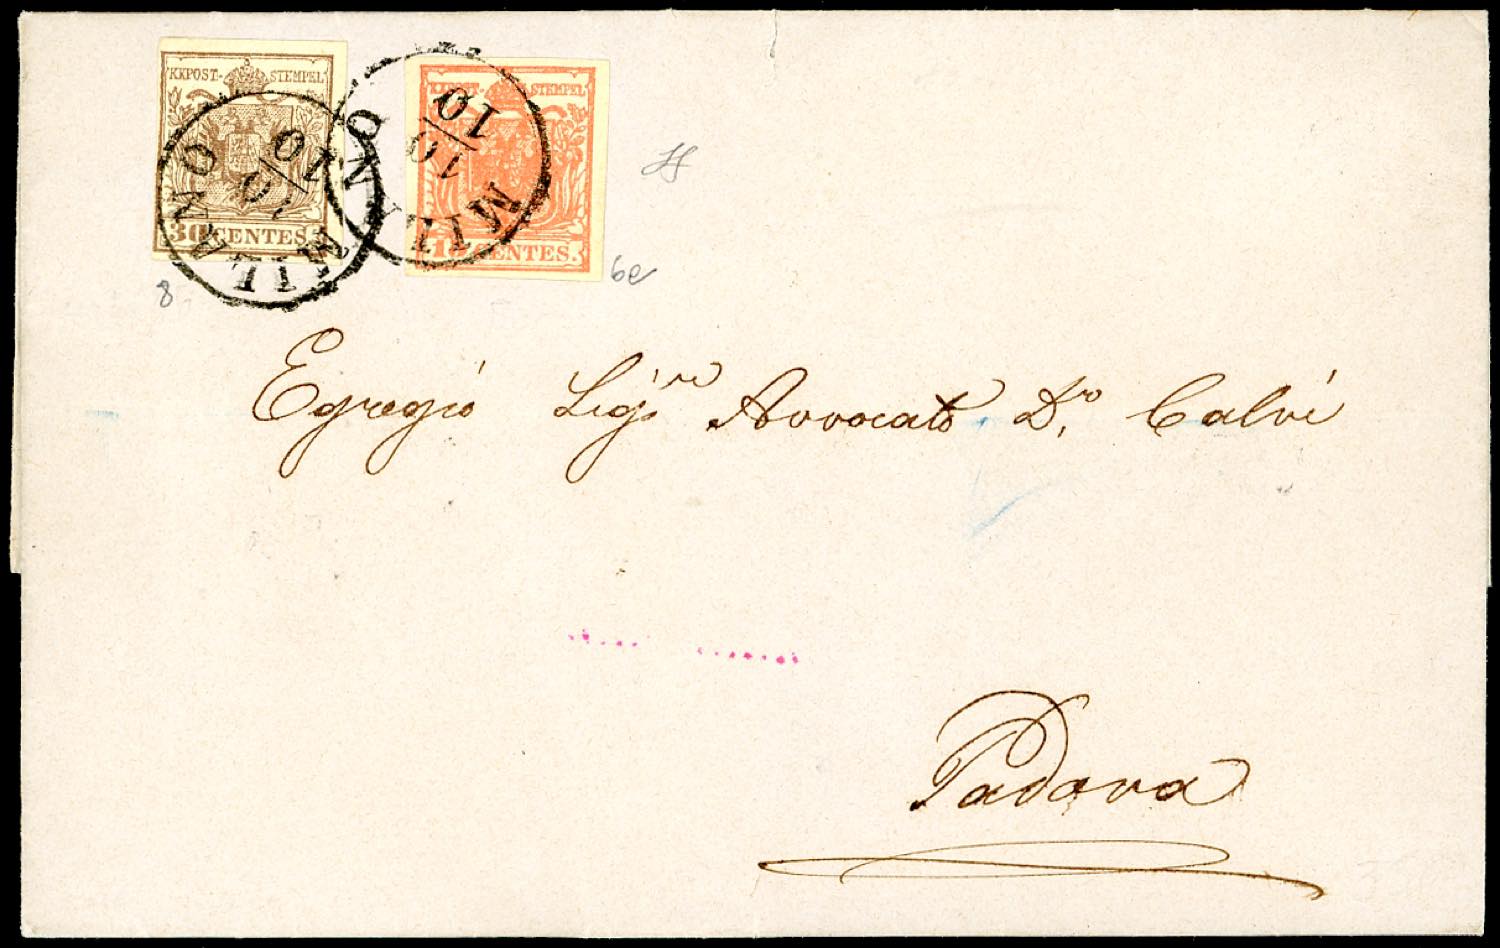 KKPOST-STEMPEL
30 CENTES.
MILANO
10
10
KKPOST-STEMPEL
15 CENTES.
MILANO
10
10
8
6e
Egregio Sigr. re Avvocato D.ro Calvi
Padova